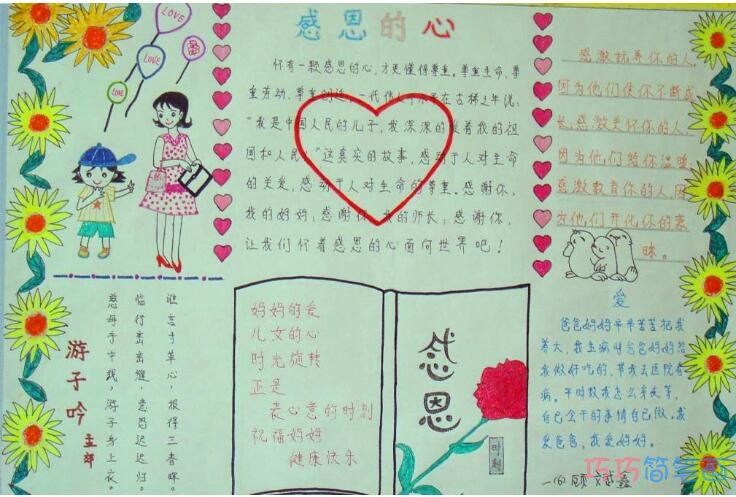 LOVE
LOVE
LOVE
感恩的心
怀有一颗感恩的心,才更懂得尊重。尊重生命、尊
重劳动、尊重创造。一代伟人邓小平在古稀之年说:
"我是中国人民的儿子,我深深的爱着我的祖
国和人民!"这真实的故事,感动于人对生命
的关爱,感动于人对生命的尊重。感谢你,
我的妈妈;感谢你,我的师长;感谢你,
让我们怀着感恩的心面向世界吧!
感激抚养你的人,
因为他们使你不断成
长,感激关怀你的人,
因为他们给你温暖
感激教育你的人,因
为他们开化你的蒙
昧。
游子吟
慈母手中线,游子身上衣。
临行密密缝,意恐迟迟归。
谁言寸草心,报得三春晖。
妈妈的爱
儿女的心
时光旋转
正是
表心意的时刻
祝福妈妈
健康快乐
感恩
时刻
爱
爸爸妈妈辛辛苦苦把我
养大,我生病时爸爸妈妈给
我做好吃的,带我去医院看
病。平时教我怎么考关等,
自己会干的事情自己做。我
爱爸爸,我爱妈妈。
巧巧简笔画